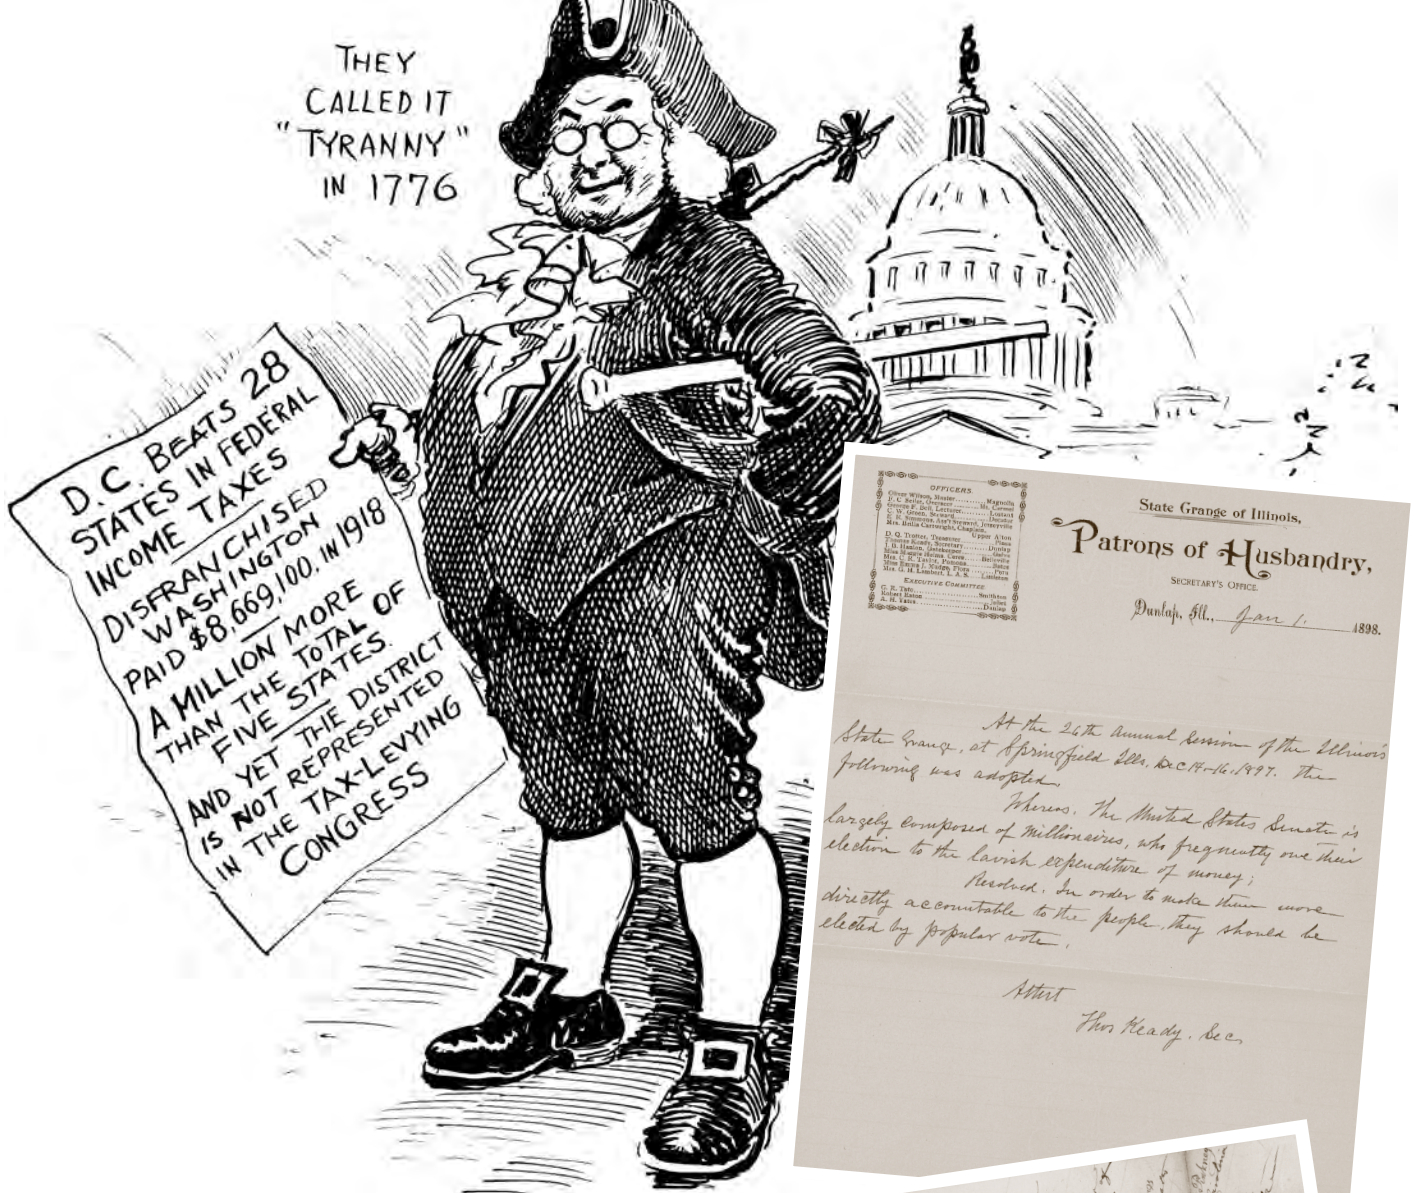 THEY
CALLED IT
"TYRANNY"
IN 1776
D.C. BEATS 28
STATES IN FEDERAL
INCOME TAXES
DISFRANCHISED
WASHINGTON
PAID $8,669,100, IN 1918
A MILLION MORE
THAN THE TOTAL OF
FIVE STATES.
AND YET THE DISTRICT
IS NOT REPRESENTED
IN THE TAX-LEVYING
CONGRESS
OFFICERS.
Oliver Wilson, Master Magnolia
EXECUTIVE COMMITTEE
State Grange of Illinois,
Patrons of Husbandry,
SECRETARY'S OFFICE.
Dunlap, Ill., Jan 1. 1898.
At the 26th Annual Session of the Illinois
State Grange, at Springfield Ills. Dec 14-16-1897. the
following was adopted.
Whereas, The United States Senate is
largely composed of millionaires, who frequently owe their
election to the lavish expenditure of money;
Resolved. In order to make them more
directly accountable to the people, they should be
elected by popular vote.
Attest
Thos Keady. Sec.